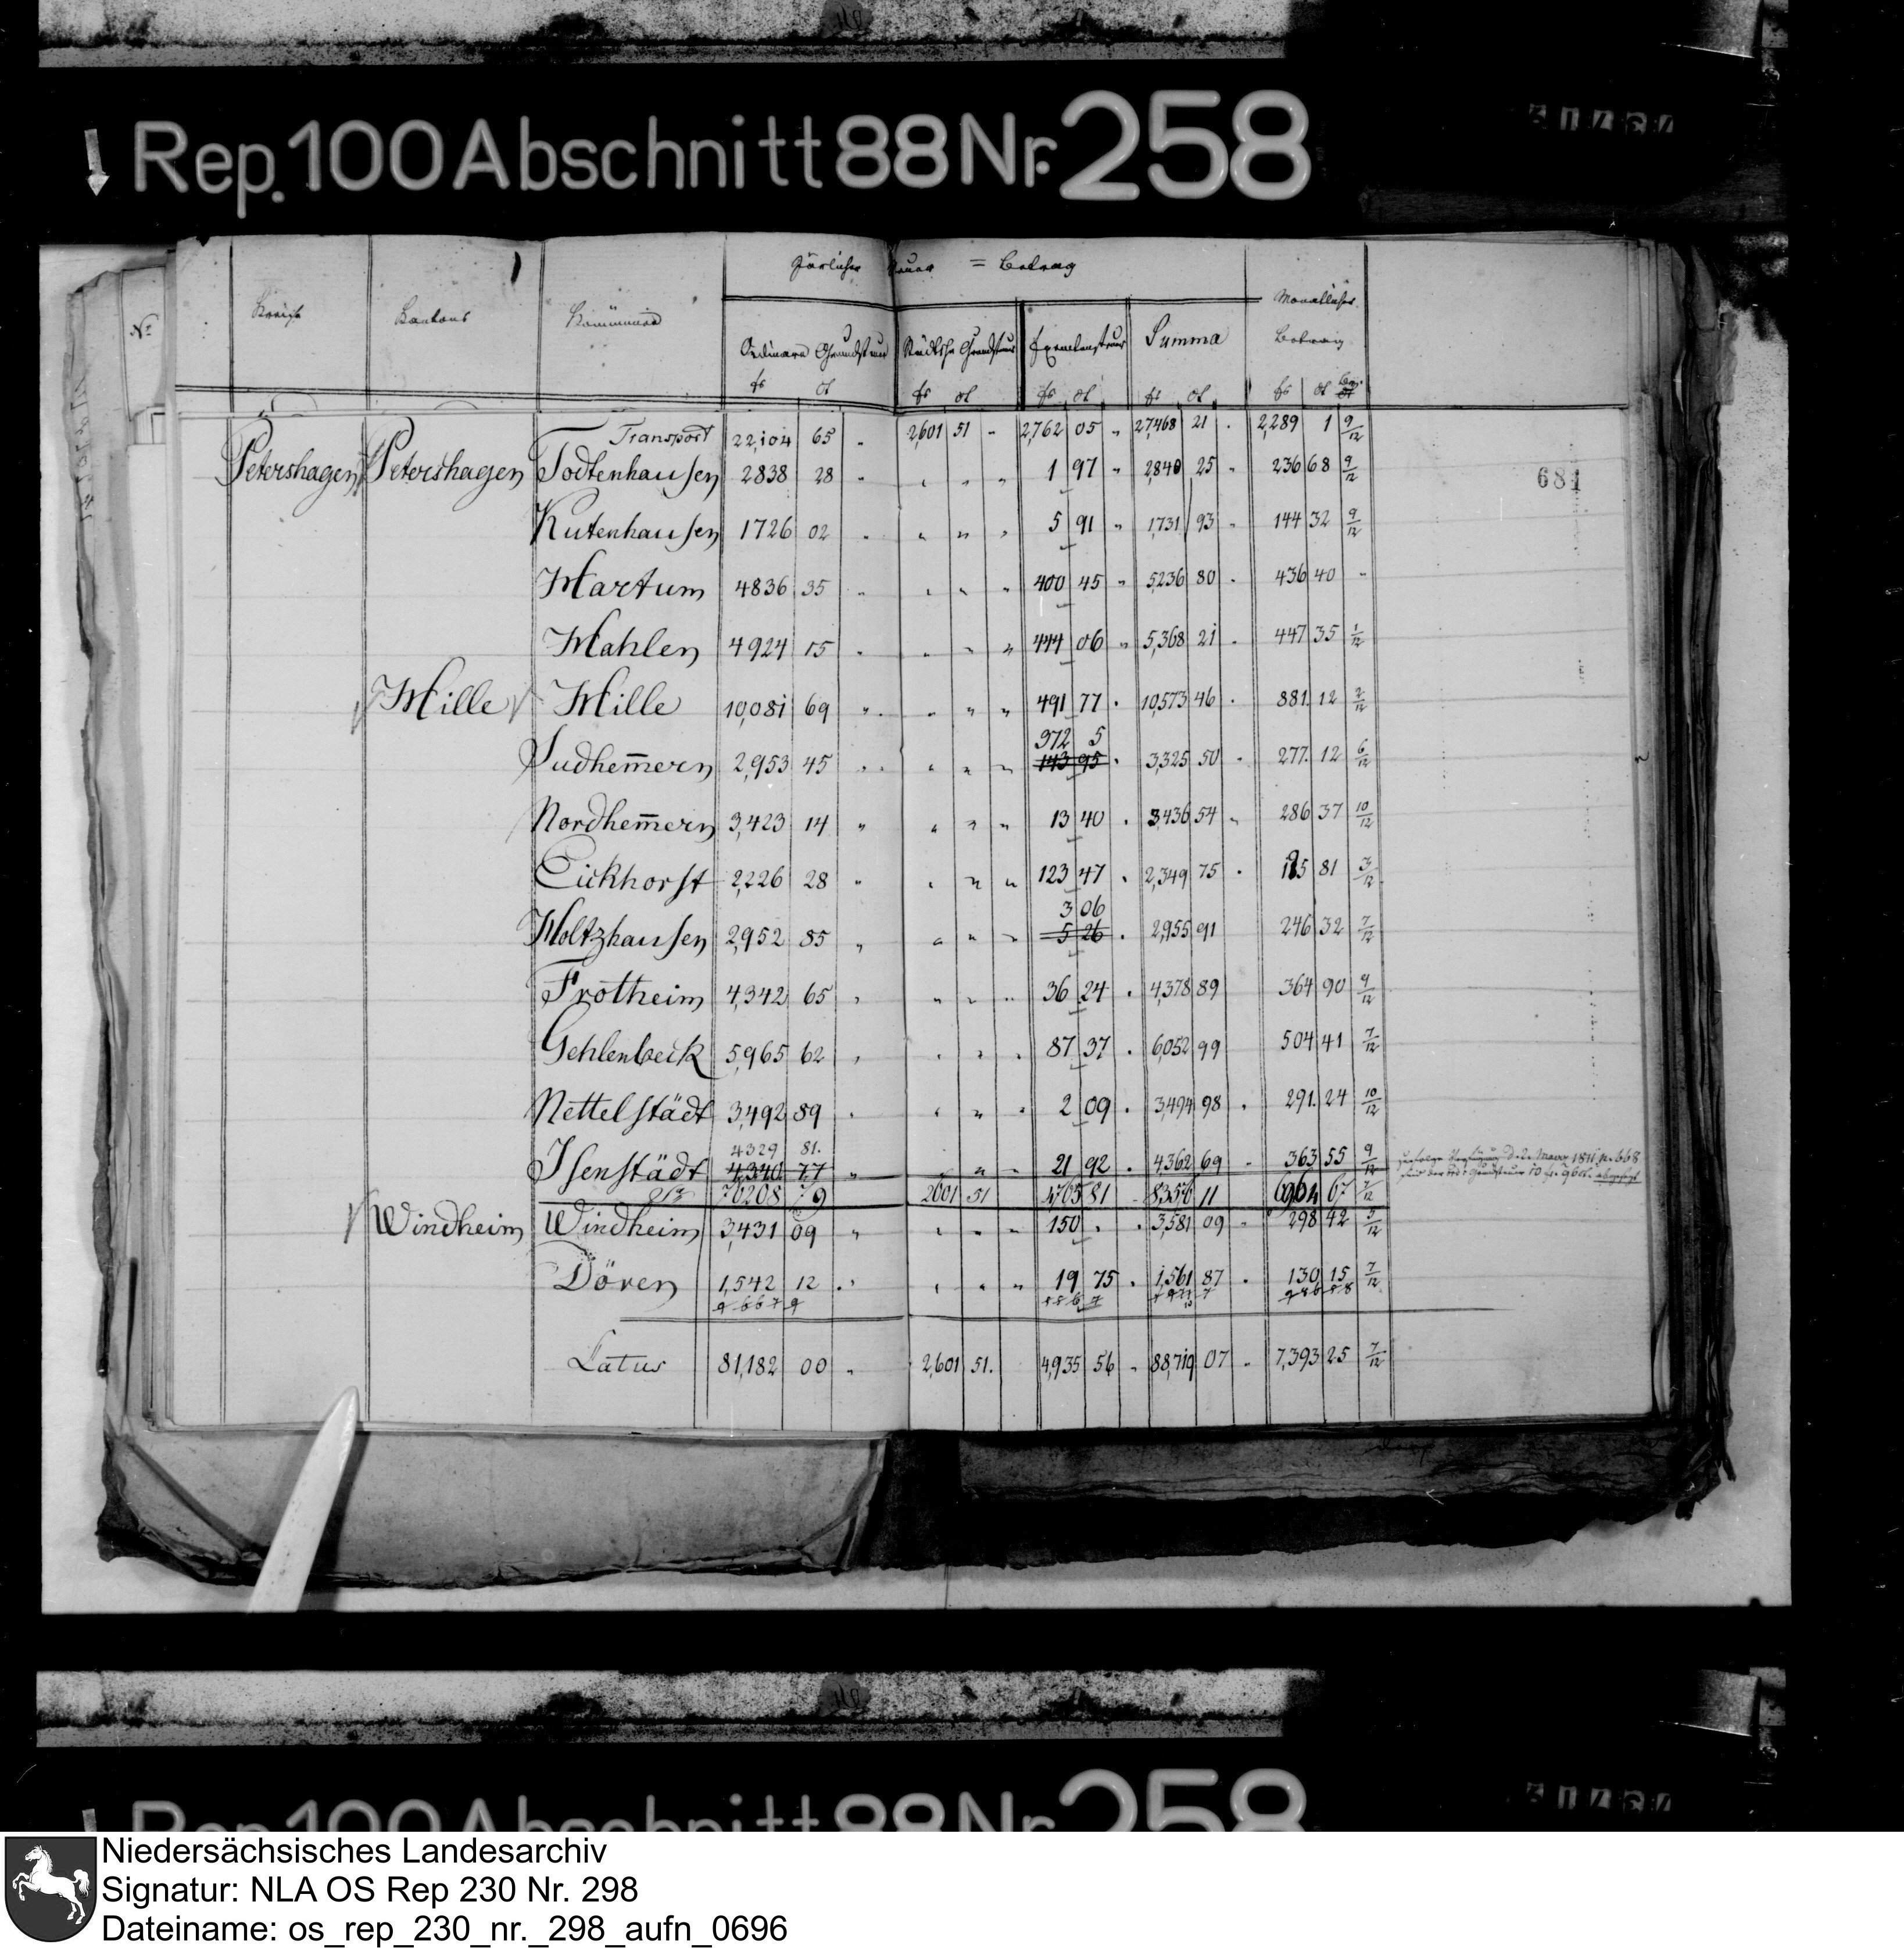 Rep. 100 Abschnitt 88 Nr. 258
Järlicher Steuer = Betrag
No Kreise Kantons Kommünen Monatlicher Betrag
Ordinäre Grundsteuer Städtsche Grundsteuer Exemtensteuer Summa
Transport 22,104 65 " 2,601 51 " 2,762 05 " 27,468 21 . 2,289 1 9/12
Petershagen Petershagen Todtenhausen 2838 28 " " " " 1 97 " 2,840 25 " 236 68 9/12
681
Kutenhausen 1726 02 " " " " 5 91 " 1,731 93 " 144 32 9/12
Hartum 4836 35 " " " " 400 45 " 5,236 80 . 436 40 "
Hahlen 4924 15 " " " " 444 06 " 5,368 21 . 447 35 1/12
Hille Hille 10,081 69 " " " " 491 77 . 10,573 46 . 881. 12 2/12
372 5
Sudhem̄ern 2,953 45 " " " " 143 95 . 3,325 50 . 277. 12 6/12
Nordhem̄ern 3,423 14 " " " " 13 40 . 3,436 54 " 286 37 10/12
Eickhorst 2,226 28 " " " " 123 47 . 2,349 75 . 195 81 3/12
3 06
Holtzhausen 2,952 85 " " " " 5 26 . 2,955 91 246 32 7/12
Frotheim 4,342 65 " " " " 36 24 . 4,378 89 364 90 9/12
Gehlenbeck 5,965 62 " " " " 87 37 . 6,052 99 504 41 7/12
Nettelstädt 3,492 89 . " " " 2 09 . 3,494 98 . 291. 24 10/12
4329 81.
Isenstädt 4,340. 77 " " " 21 92 . 4,362 69 " 363 55 9/12
76208 79 2601 51 4765 81 83576 11 6964 67 7/12
Windheim Windheim 3,431 09 " " " " 150 . . 3,581 09 " 298 42 5/12
Dören 1,542 12 . " " " 19 75 . 1,561 87 . 130 15 7/12
Latus 81,182 00 " 2,601 51. 4,935 56 " 88,719 07 " 7,393 25 7/12
Rep. 100 Abschnitt 88 Nr. 258
Niedersächsisches Landesarchiv
Signatur: NLA OS Rep 230 Nr. 298
Dateiname: os_rep_230_nr._298_aufn_0696